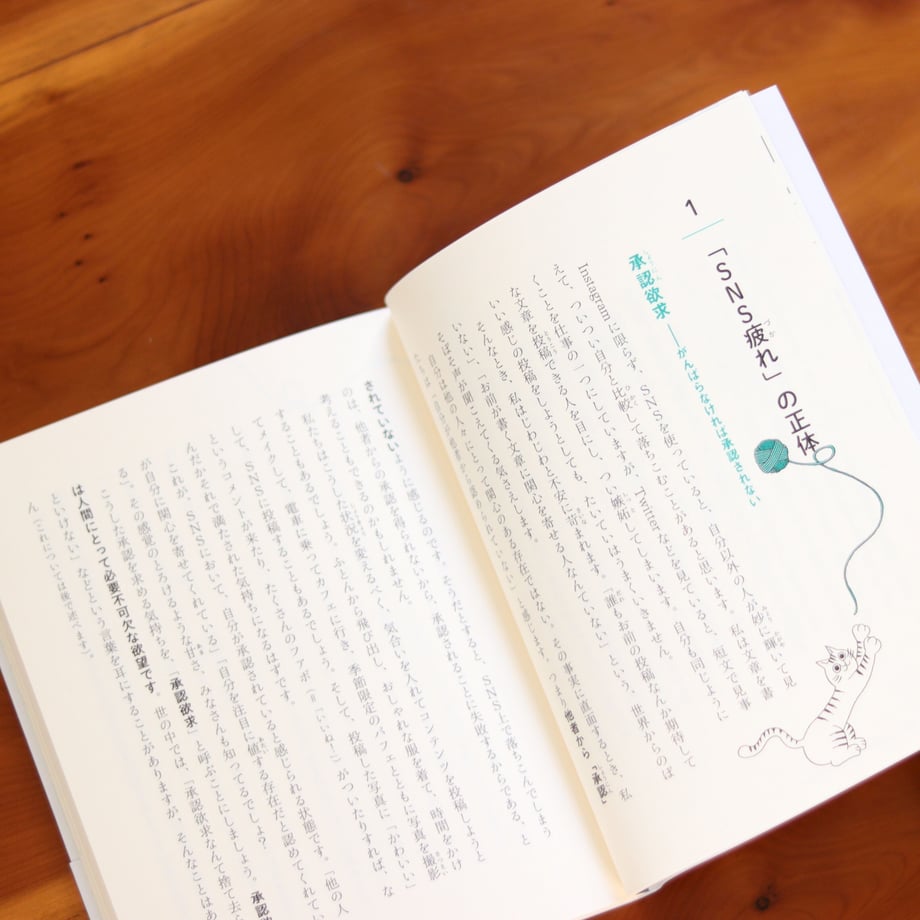 1
「SNS疲れ」の正体
承認欲求――がんばらなければ承認されない
Instagramに限らず、SNSを使っていると、自分以外の人が妙に輝いて見
えて、ついつい自分と比較して落ちこむことがあると思います。私は文章を書
くことを仕事の一つにしていますが、Twitterなどを見ていると、短文で見事
な文章を投稿できる人を目にし、つい嫉妬してしまいます。自分も同じように
いい感じの投稿をしようとしても、たいていはうまくいきません。
そんなとき、私はじわじわと不安に苛まれます。「誰もお前の投稿なんか期待して
いない」、「お前が書く文章に関心を寄せる人なんていない」という、世界からのぼ
そぼそ声が聞こえてくる気さえします。
自分は他の人々にとって関心のある存在ではない。その事実に直面するとき、私
たちは「自分が他者から認められていない」と感じます。つまり他者から「承認」
されていないように感じるのです。そうだとすると、SNS上で落ちこんでしまう
のは、他者からの承認を得られないから、承認されることに失敗するからである、と
考えることもできるのかもしれません。
私たちはこうした状況を変えるべく、気合いを入れてコンテンツを投稿しようと
することもあるでしょう。ふとんから飛び出し、おしゃれな服を着て、時間をかけ
てメイクして、電車に乗ってカフェに行き、季節限定のパフェとともに写真を撮影
して、SNSに投稿することもあるでしょう。そして、投稿した写真に「かわいい」
というコメントが来たり、たくさんのファボ（＝「いいね！」）がついたりすれば、な
んだかそれで満たされた気持ちになるはずです。
これが、SNSにおいて、自分が承認されていると感じられる状態です。「他の人
が自分に関心を寄せてくれている」「自分を注目に値する存在だと認めてくれてい
る」、その感覚のとろけるような甘さ、みなさんも知ってるでしょ？
こうした承認を求める気持ちを、「承認欲求」と呼ぶことにしましょう。承認欲
は人間にとって必要不可欠な欲望です。世の中では、「承認欲求なんて捨て去
といけない」などという言葉を耳にすることがありますが、そんなことはあ
ん（これについては後で述べます）。